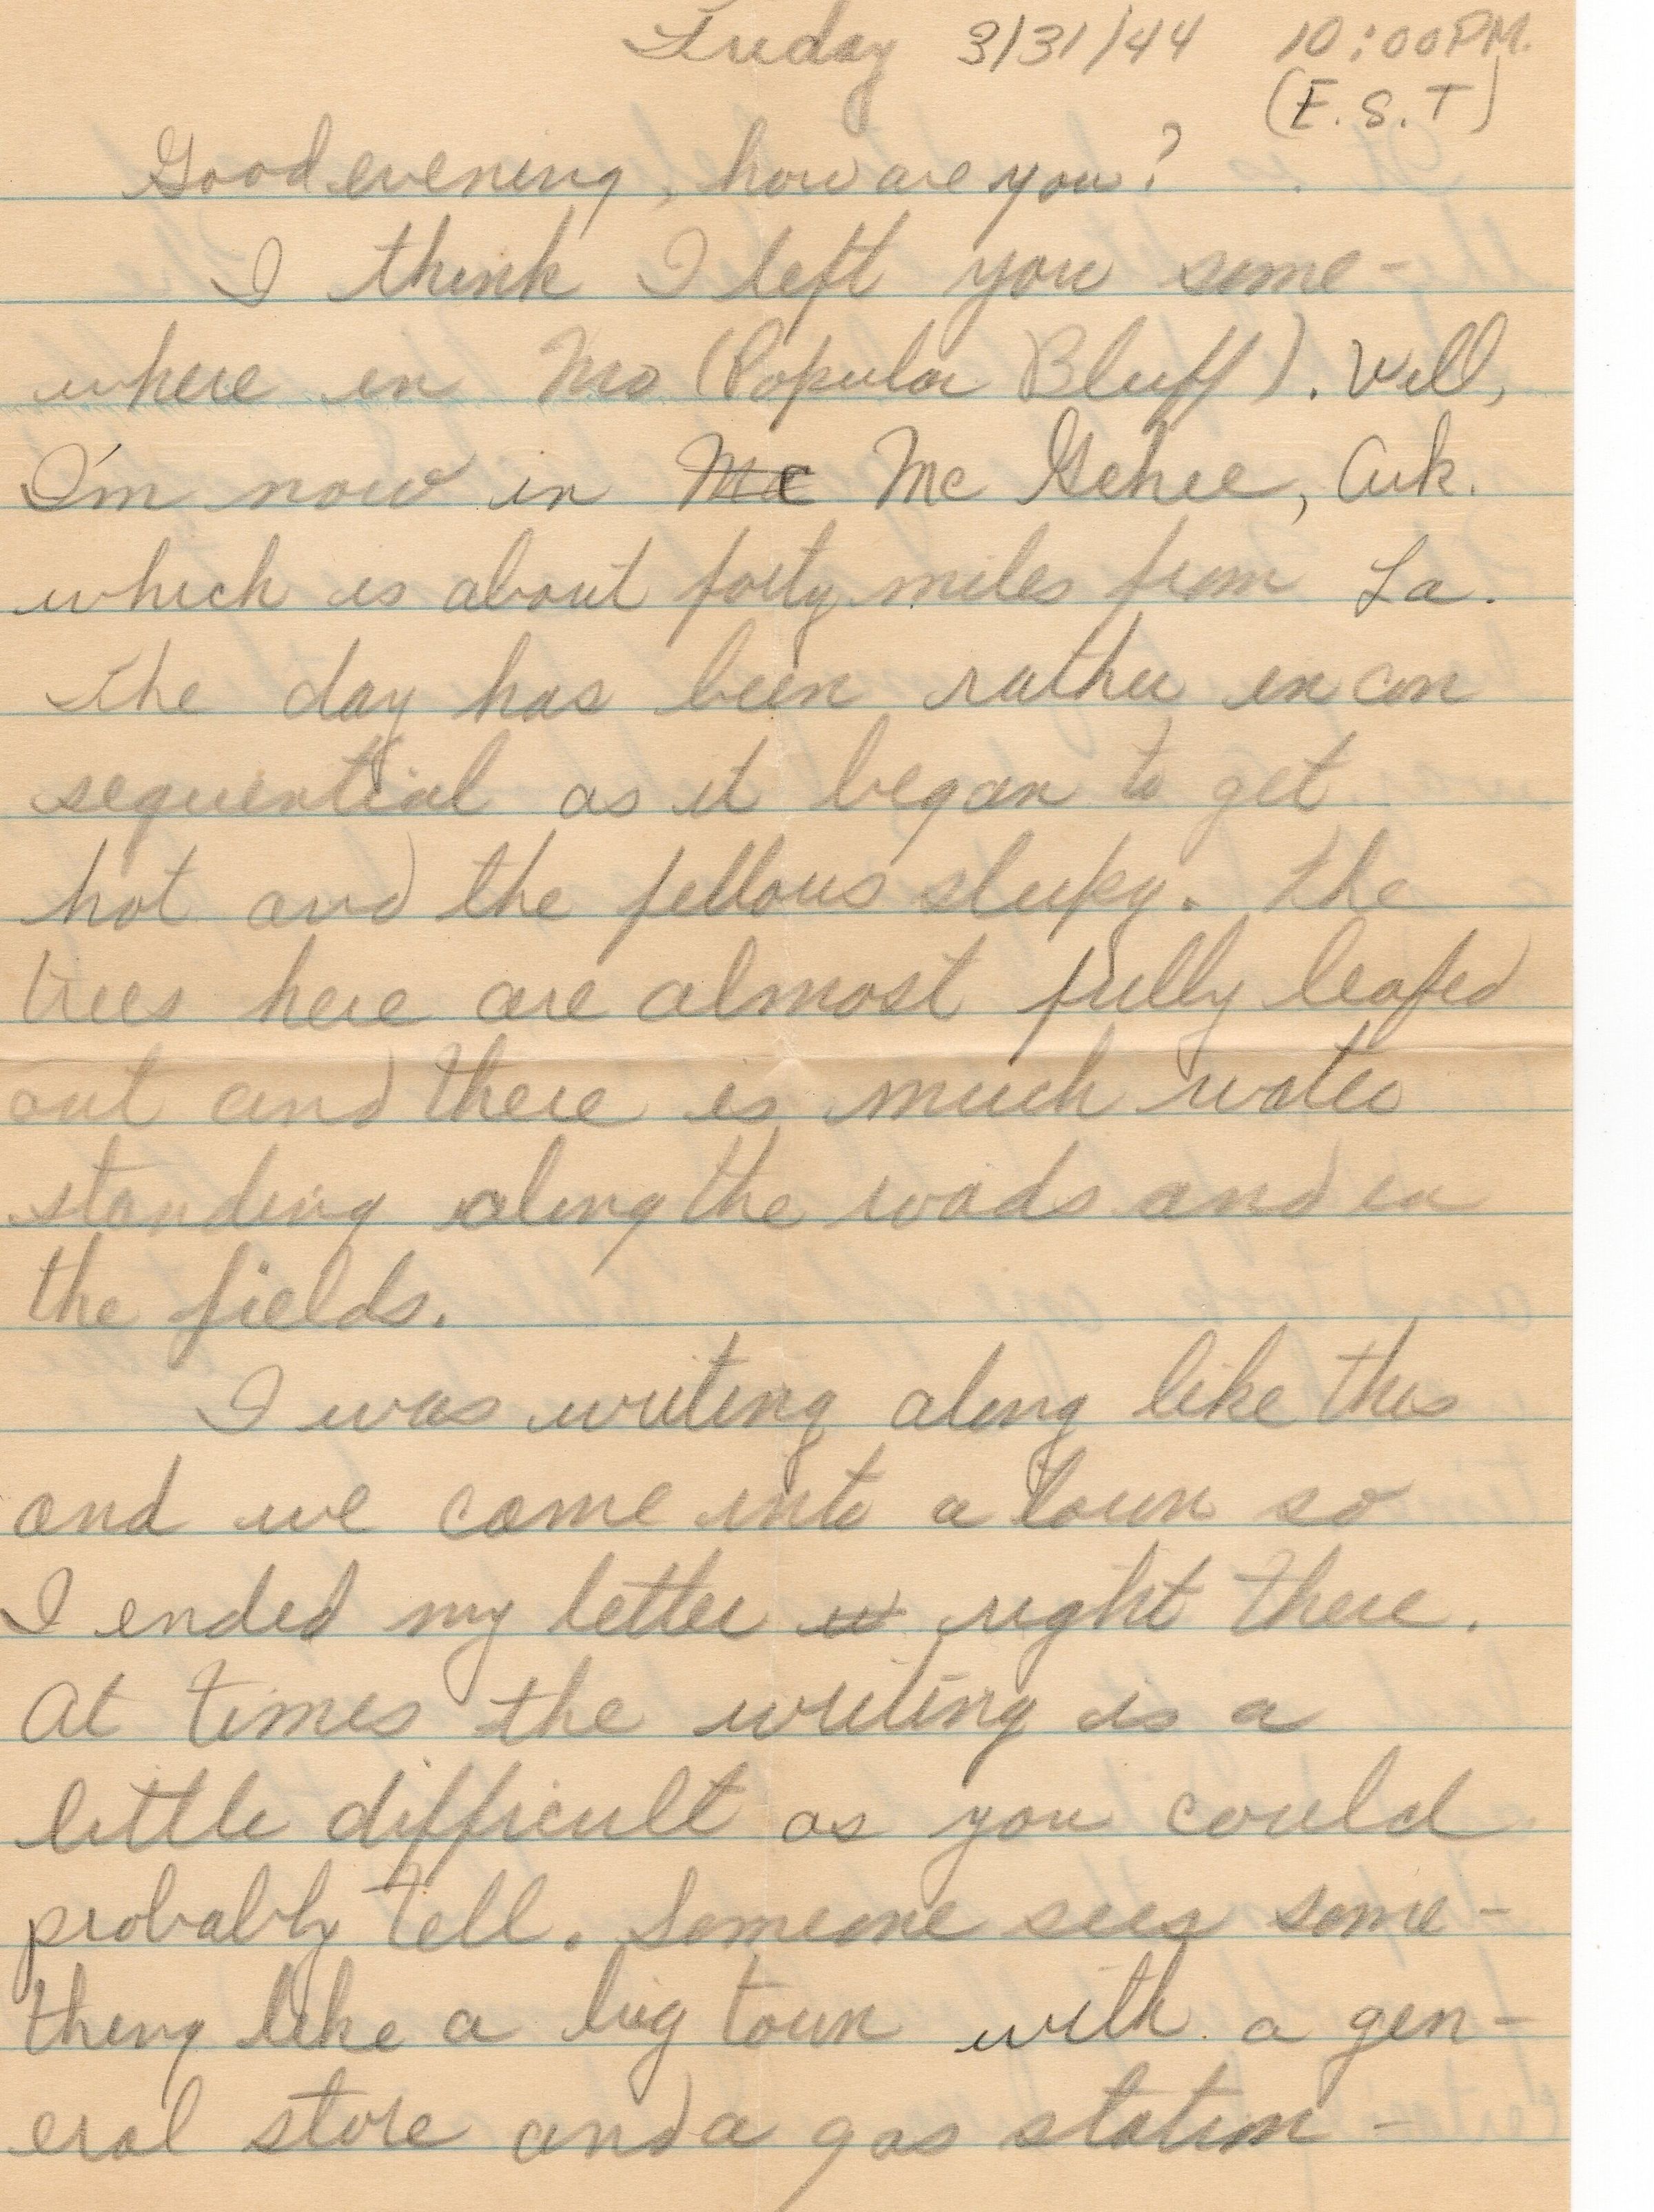 Friday 3/31/44 10:00 P.M.
(E.S.T)
Good evening, how are you?
I think I left you some-
where in Mo (Popular Bluff). Well,
I'm now in Mc Mc Gehee, Ark.
which is about forty miles from La.
The day has been rather in con
sequential as it began to get
hot and the fellows sleepy. The
trees here are almost fully leafed
out and there is much water
standing along the roads and in
the fields.
I was writing along like this
and we came into a town so
I ended my letter w right there.
At times the writing is a
little difficult as you could
probably tell. Someone sees some-
thing like a big town with a gen-
eral store and a gas station -